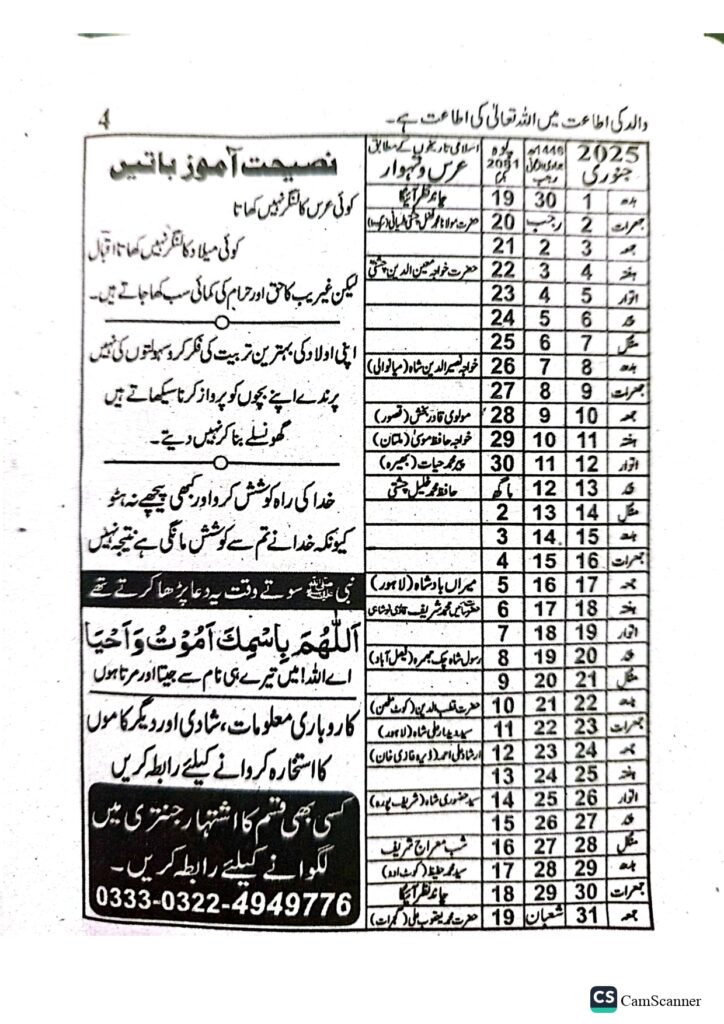 والد کی اطاعت میں اللہ تعالیٰ کی اطاعت ہے۔
4
2025 جنوری
1446ھ رجب
پوہ 2081
اسلامی تاریخوں کے مطابق عرس و تہوار
بدھ 1 30 19 چاند نظر آئیگا
جمعرات 2 رجب 20 حضرت مولانا محمد
جمعہ 3 2 21
ہفتہ 4 3 22 حضرت خواجہ معین الدین چشتی
اتوار 5 4 23
6 5 24
منگل 7 6 25
بدھ 8 7 26 خواجہ نصیر الدین شاہ (میانوالی)
جمعرات 9 8 27
جمعہ 10 9 28 مولوی قادر بخش (قصور)
ہفتہ 11 10 29 خواجہ حافظ موسیٰ (ملتان)
اتوار 12 11 30 پیر محمد حیات (بھیرہ)
13 12 ماگھ حافظ محمد خلیل چشتی
منگل 14 13 2
بدھ 15 14 3
جمعرات 16 15 4
جمعہ 17 16 5 میراں بادشاہ (لاہور)
ہفتہ 18 17 6 محمد شریف قادری نوشاہی
اتوار 19 18 7
20 19 8 رسول شاہ چک جھمرہ (فیصل آباد)
منگل 21 20 9
بدھ 22 21 10 حضرت قطب الدین (کوٹ مٹھن)
جمعرات 23 22 11 سید دیدار علی شاہ (لاہور)
جمعہ 24 23 12 ارشاد علی احمد (ڈیرہ غازی خان)
ہفتہ 25 24 13
اتوار 26 25 14 سید حضوری شاہ (شریف پورہ)
27 26 15
منگل 28 27 16 شب معراج شریف
بدھ 29 28 17 سید محمد حفیظ (کوٹ ادو)
جمعرات 30 29 18 چاند نظر آئیگا
جمعہ 31 شعبان 19 حضرت محمد یعقوب علی (گجرات)
نصیحت آموز باتیں
کوئی عرس کا لنگر نہیں کھاتا
کوئی میلاد کا لنگر نہیں کھاتا اقبال
لیکن غیریب کا حق اور حرام کی کمائی سب کھا جاتے ہیں۔
اپنی اولاد کی بہترین تربیت کی فکر کرو سہولتوں کی نہیں
پرندے اپنے بچوں کو پرواز کرنا سیکھاتے ہیں
گھونسلے بنا کر نہیں دیتے۔
خدا کی راہ کوشش کرو اور کبھی پیچھے نہ ہٹو
کیونکہ خدا نے تم سے کوشش مانگی ہے نتیجہ نہیں
نبی ﷺ سوتے وقت یہ دعا پڑھا کرتے تھے
اَللّٰھُمَّ بِاسْمِكَ اَمُوْتُ وَاَحْيَا
اے اللہ! میں تیرے ہی نام سے جیتا اور مرتا ہوں
کاروباری معلومات، شادی اور دیگر کاموں
کا استخارہ کروانے کیلئے رابطہ کریں
کسی بھی قسم کا اشتہار جنتری میں
لگوانے کیلئے رابطہ کریں۔
0333-0322-4949776
CS CamScanner